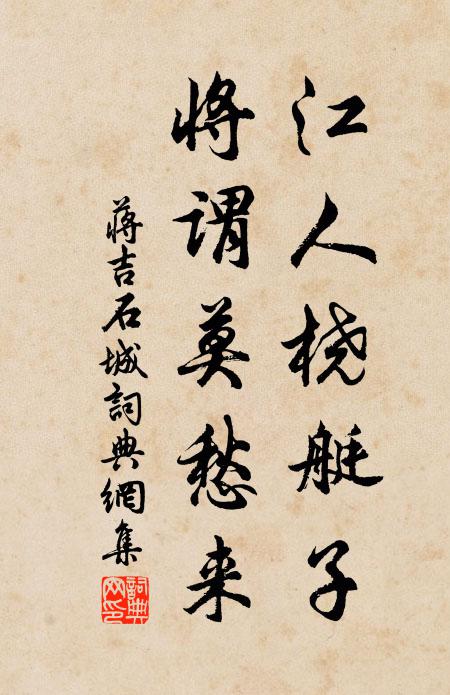 江人桡艇子
将谓莫愁来
蒋吉石城詞典網集
詞典网印